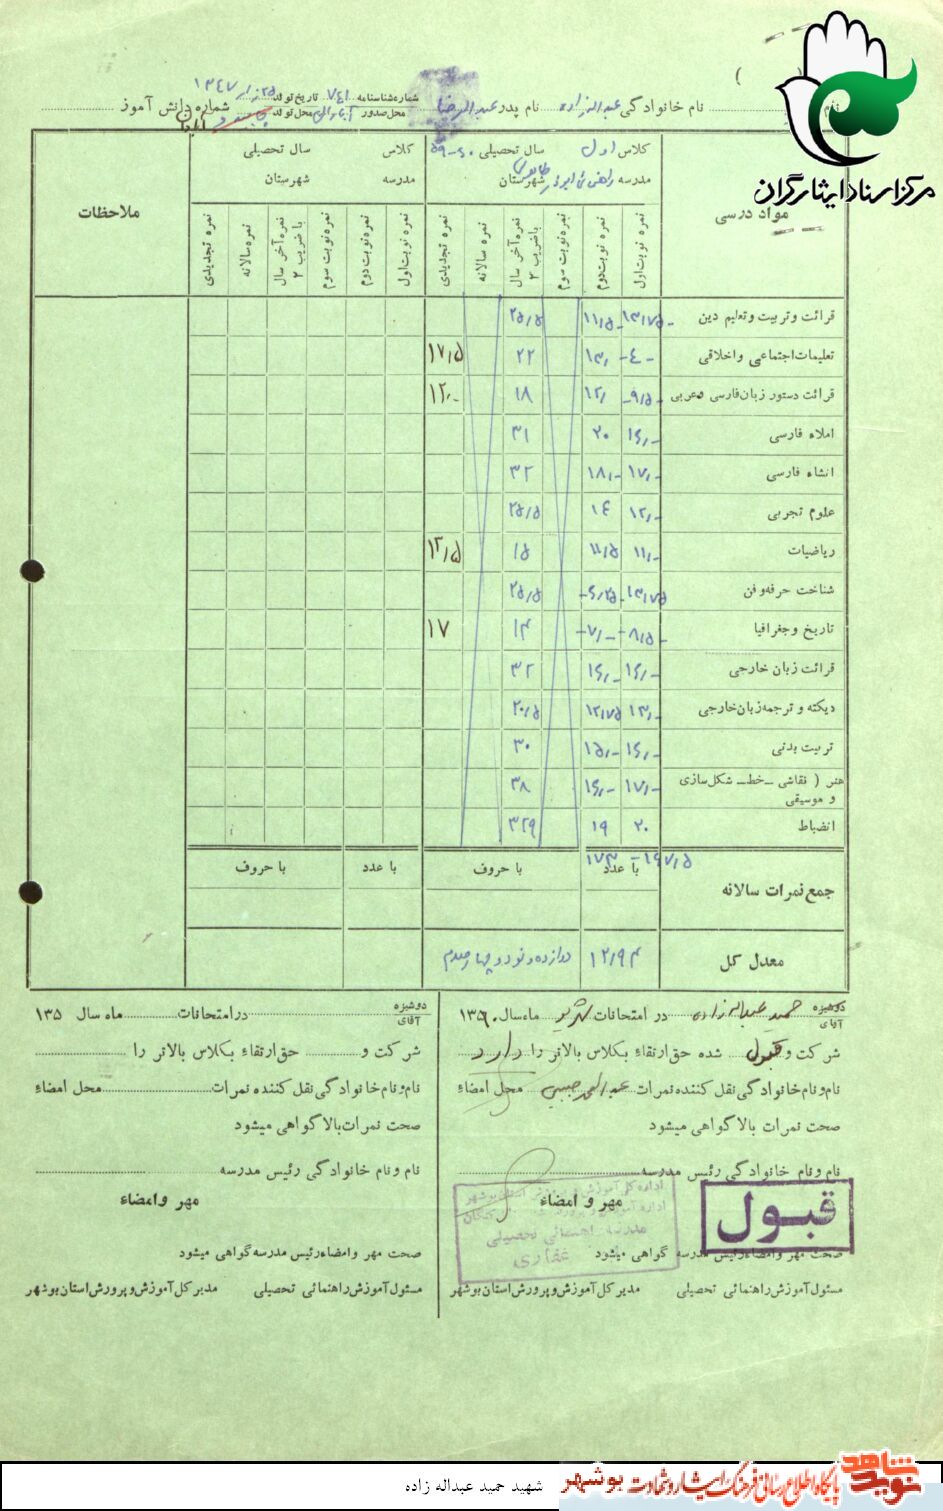 مرکز اسناد ایثارگران
نام خانوادگی عبداله زاده نام پدر عبدالرضا شماره شناسنامه ۷۴۱ تاریخ تولد ۱۳۴۷ شماره دانش آموز
محل صدور محل تولد
کلاس اول سال تحصیلی ۶۰-۵۹ کلاس سال تحصیلی
مدرسه راهنمائی شهرستان مدرسه شهرستان
مواد درسی نمره نوبت اول نمره نوبت دوم نمره نوبت سوم نمره آخر سال باضریب ۲ نمره سالانه نمره تجدیدی نمره نوبت اول نمره نوبت دوم نمره نوبت سوم نمره آخر سال باضریب ۲ نمره سالانه نمره تجدیدی ملاحظات
قرائت و تربیت و تعلیم دین ۱۳/۷۵ ۱۱/۵ ۲۵/۵
تعلیمات اجتماعی و اخلاقی ۴- ۱۳/ ۲۲ ۱۷/۵
قرائت دستور زبان فارسی و عربی ۹/۵ ۱۲/ ۱۸ ۱۲/-
املاء فارسی ۱۶/- ۲۰ ۳۱
انشاء فارسی ۱۷/- ۱۸/- ۳۲
علوم تجربی ۱۲/- ۱۴ ۲۵/۵
ریاضیات ۱۱/- ۱۱/۵ ۱۵ ۱۲/۵
شناخت حرفه و فن ۱۳/۷۵ ۶/۲۵ ۲۵/۵
تاریخ و جغرافیا ۸/۵ ۷/- ۱۴ ۱۷
قرائت زبان خارجی ۱۶/- ۱۶/- ۳۲
دیکته و ترجمه زبان خارجی ۱۳/- ۱۲/۷۵ ۲۰/۵
تربیت بدنی ۱۶/- ۱۵/- ۳۰
هنر ( نقاشی ـ خط ـ شکل سازی و موسیقی ۱۷/- ۱۶/- ۳۸
انضباط ۲۰ ۱۹ ۳۲۹
۱۹۷/۵ - ۱۷۳
جمع نمرات سالانه با عدد با حروف با عدد با حروف
معدل کل ۱۲/۹۴ دوازده و نود و چهار صدم
دوشیزه آقای حمید عبداله زاده در امتحانات شهریور ماه سال ۱۳۶۰
شرکت و قبول شده حق ارتقاء بکلاس بالاتر را دارد
نام و نام خانوادگی نقل کننده نمرات محل امضاء
صحت نمرات بالا گواهی میشود
نام و نام خانوادگی رئیس مدرسه
مهر و امضاء
قبول
صحت مهر و امضاء رئیس مدرسه گواهی میشود
مسئول آموزش راهنمائی تحصیلی مدیر کل آموزش و پرورش استان بوشهر
اداره کل آموزش و پرورش استان بوشهر
مدرسه راهنمائی تحصیلی
غفاری
دوشیزه آقای در امتحانات ماه سال ۱۳۵
شرکت و حق ارتقاء بکلاس بالاتر را
نام و نام خانوادگی نقل کننده نمرات محل امضاء
صحت نمرات بالا گواهی میشود
نام و نام خانوادگی رئیس مدرسه
مهر و امضاء
صحت مهر و امضاء رئیس مدرسه گواهی میشود
مسئول آموزش راهنمائی تحصیلی مدیر کل آموزش و پرورش استان بوشهر
نوید شاهد پایگاه اطلاع رسانی فرهنگ ایثار و شهادت بوشهر
شهید حمید عبداله زاده